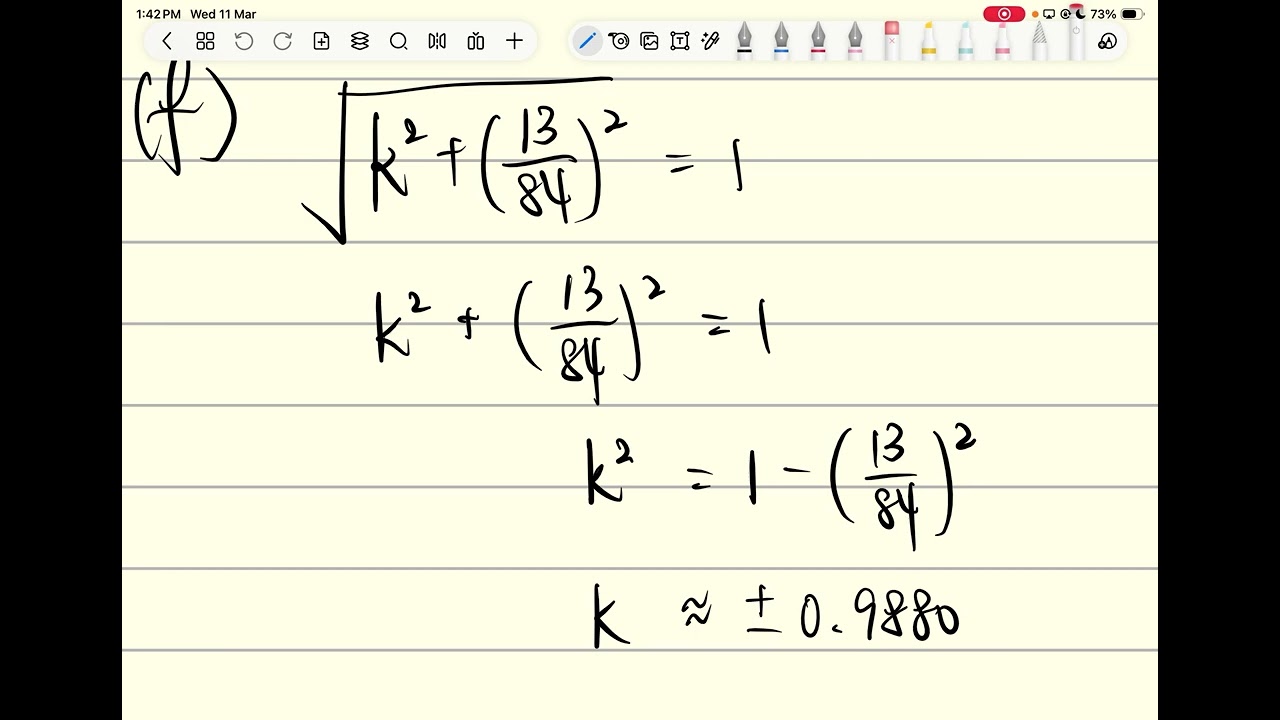 1:42 PM Wed 11 Mar 73%
(f) √(k² + (13/84)²) = 1
k² + (13/84)² = 1
k² = 1 − (13/84)²
k ≈ ± 0.9880